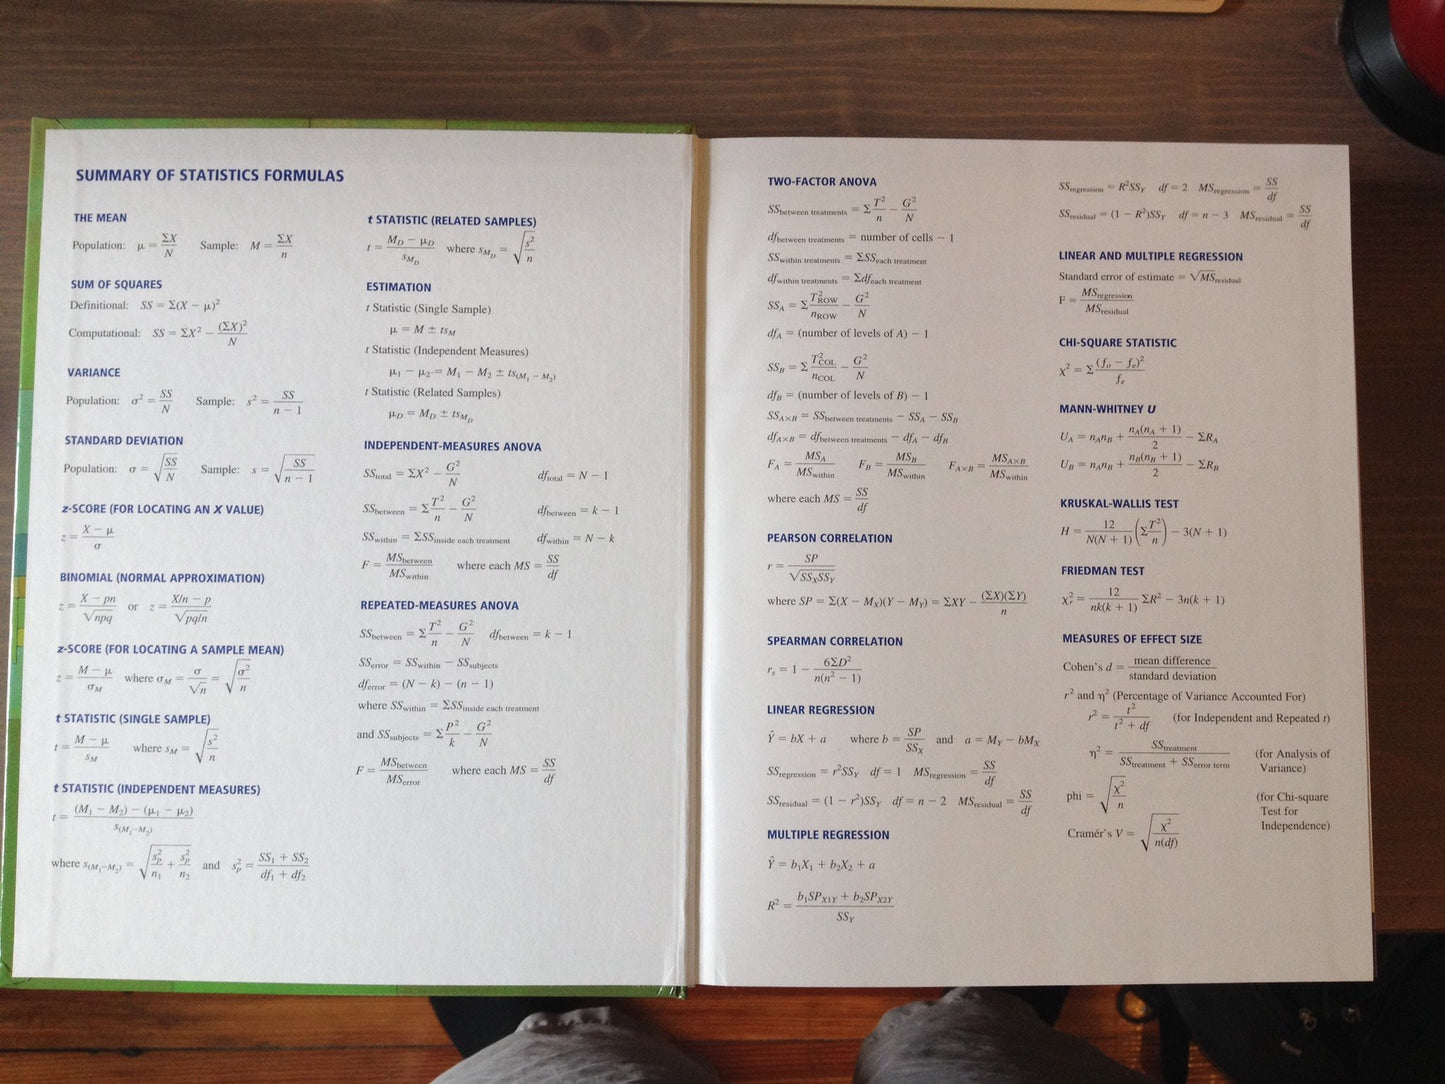 SUMMARY OF STATISTICS FORMULAS
THE MEAN
Population: μ = ΣX/N Sample: M = ΣX/n
SUM OF SQUARES
Definitional: SS = Σ(X − μ)²
Computational: SS = ΣX² − (ΣX)²/N
VARIANCE
Population: σ² = SS/N Sample: s² = SS/(n − 1)
STANDARD DEVIATION
Population: σ = √(SS/N) Sample: s = √(SS/(n − 1))
z-SCORE (FOR LOCATING AN X VALUE)
z = (X − μ)/σ
BINOMIAL (NORMAL APPROXIMATION)
z = (X − pn)/√(npq) or z = (X/n − p)/√(pq/n)
z-SCORE (FOR LOCATING A SAMPLE MEAN)
z = (M − μ)/σ_M where σ_M = σ/√n = √(σ²/n)
t STATISTIC (SINGLE SAMPLE)
t = (M − μ)/s_M where s_M = √(s²/n)
t STATISTIC (INDEPENDENT MEASURES)
t = ((M₁ − M₂) − (μ₁ − μ₂))/s_(M₁−M₂)
where s_(M₁−M₂) = √(s²_p/n₁ + s²_p/n₂) and s²_p = (SS₁ + SS₂)/(df₁ + df₂)
t STATISTIC (RELATED SAMPLES)
t = (M_D − μ_D)/s_M_D where s_M_D = √(s²/n)
ESTIMATION
t Statistic (Single Sample)
μ = M ± ts_M
t Statistic (Independent Measures)
μ₁ − μ₂ = M₁ − M₂ ± ts_(M₁ − M₂)
t Statistic (Related Samples)
μ_D = M_D ± ts_M_D
INDEPENDENT-MEASURES ANOVA
SS_total = ΣX² − G²/N df_total = N − 1
SS_between = Σ T²/n − G²/N df_between = k − 1
SS_within = ΣSS_inside each treatment df_within = N − k
F = MS_between/MS_within where each MS = SS/df
REPEATED-MEASURES ANOVA
SS_between = Σ T²/n − G²/N df_between = k − 1
SS_error = SS_within − SS_subjects
df_error = (N − k) − (n − 1)
where SS_within = ΣSS_inside each treatment
and SS_subjects = Σ P²/k − G²/N
F = MS_between/MS_error where each MS = SS/df
TWO-FACTOR ANOVA
SS_between treatments = Σ T²/n − G²/N
df_between treatments = number of cells − 1
SS_within treatments = ΣSS_each treatment
df_within treatments = Σdf_each treatment
SS_A = Σ T²_ROW/n_ROW − G²/N
df_A = (number of levels of A) − 1
SS_B = Σ T²_COL/n_COL − G²/N
df_B = (number of levels of B) − 1
SS_A×B = SS_between treatments − SS_A − SS_B
df_A×B = df_between treatments − df_A − df_B
F_A = MS_A/MS_within F_B = MS_B/MS_within F_A×B = MS_A×B/MS_within
where each MS = SS/df
PEARSON CORRELATION
r = SP/√(SS_X SS_Y)
where SP = Σ(X − M_X)(Y − M_Y) = ΣXY − (ΣX)(ΣY)/n
SPEARMAN CORRELATION
r_s = 1 − 6ΣD²/(n(n² − 1))
LINEAR REGRESSION
Ŷ = bX + a where b = SP/SS_X and a = M_Y − bM_X
SS_regression = r²SS_Y df = 1 MS_regression = SS/df
SS_residual = (1 − r²)SS_Y df = n − 2 MS_residual = SS/df
MULTIPLE REGRESSION
Ŷ = b₁X₁ + b₂X₂ + a
R² = (b₁SP_X1Y + b₂SP_X2Y)/SS_Y
SS_regression = R²SS_Y df = 2 MS_regression = SS/df
SS_residual = (1 − R²)SS_Y df = n − 3 MS_residual = SS/df
LINEAR AND MULTIPLE REGRESSION
Standard error of estimate = √MS_residual
F = MS_regression/MS_residual
CHI-SQUARE STATISTIC
χ² = Σ (f_o − f_e)²/f_e
MANN-WHITNEY U
U_A = n_A n_B + n_A(n_A + 1)/2 − ΣR_A
U_B = n_A n_B + n_B(n_B + 1)/2 − ΣR_B
KRUSKAL-WALLIS TEST
H = 12/(N(N + 1)) (Σ T²/n) − 3(N + 1)
FRIEDMAN TEST
χ²_r = 12/(nk(k + 1)) ΣR² − 3n(k + 1)
MEASURES OF EFFECT SIZE
Cohen's d = mean difference/standard deviation
r² and η² (Percentage of Variance Accounted For)
r² = t²/(t² + df) (for Independent and Repeated t)
η² = SS_treatment/(SS_treatment + SS_error term) (for Analysis of
Variance)
phi = √(χ²/n) (for Chi-square
Test for
Independence)
Cramér's V = √(χ²/n(df))